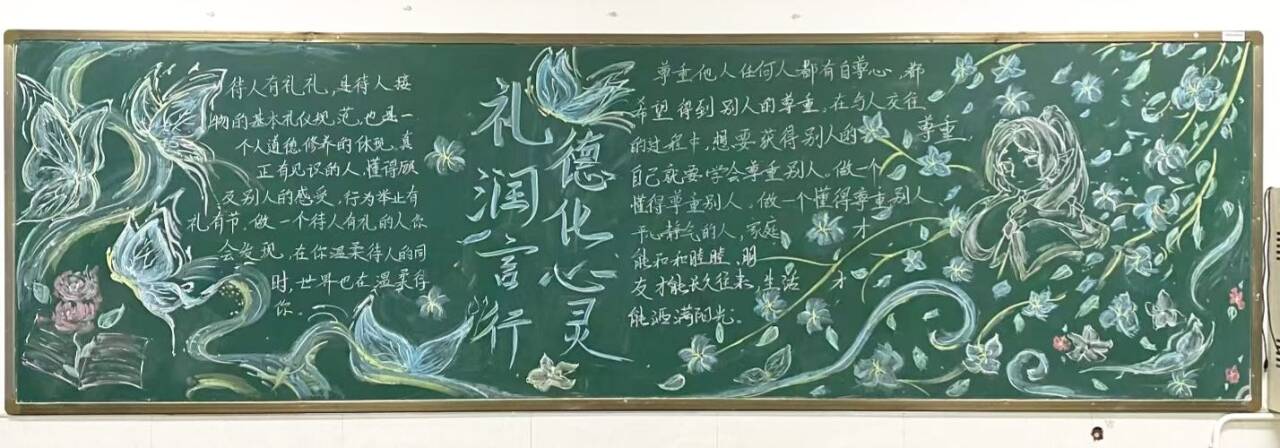 待人有礼礼,是待人接
物的基本礼仪规范,也是一
个人道德修养的体现。真
正有见识的人,懂得顾
及别人的感受,行为举止有
礼有节。做一个待人有礼的人你
会发现,在你温柔待人的同
时,世界也在温柔待
你。
礼润言行
德化心灵
尊重他人任何人都有自尊心,都
希望得到别人的尊重。在与人交往
的过程中,想要获得别人的 尊重
自己就要学会尊重别人。做一个
懂得尊重别人、做一个懂得尊重别人、
平心静气的人,家庭 才
能和和睦睦,朋
友才能长久往来,生活 才
能洒满阳光。